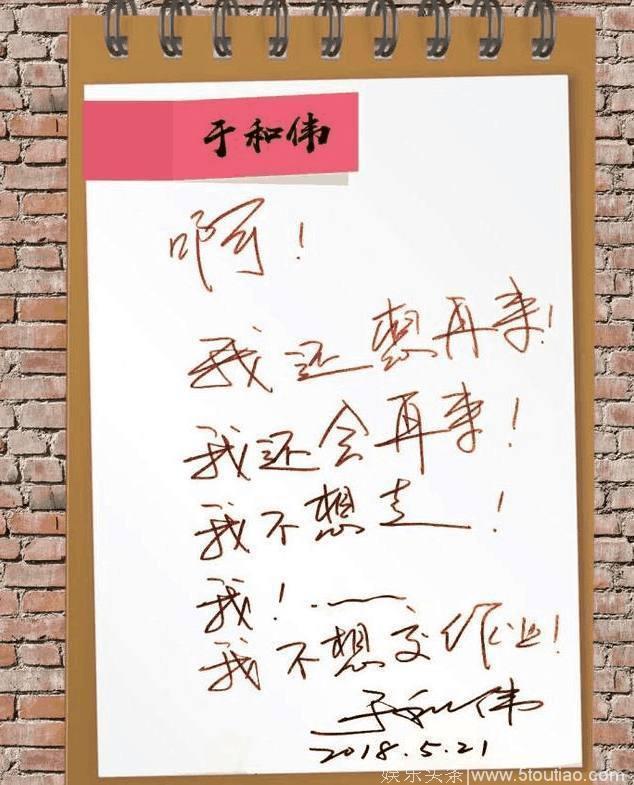 于和伟
啊！
我还想再来！
我还会再来！
我不想走！
我！.—
我不想交作业！
于和伟
2018.5.21
娱乐头条|www.5toutiao.com